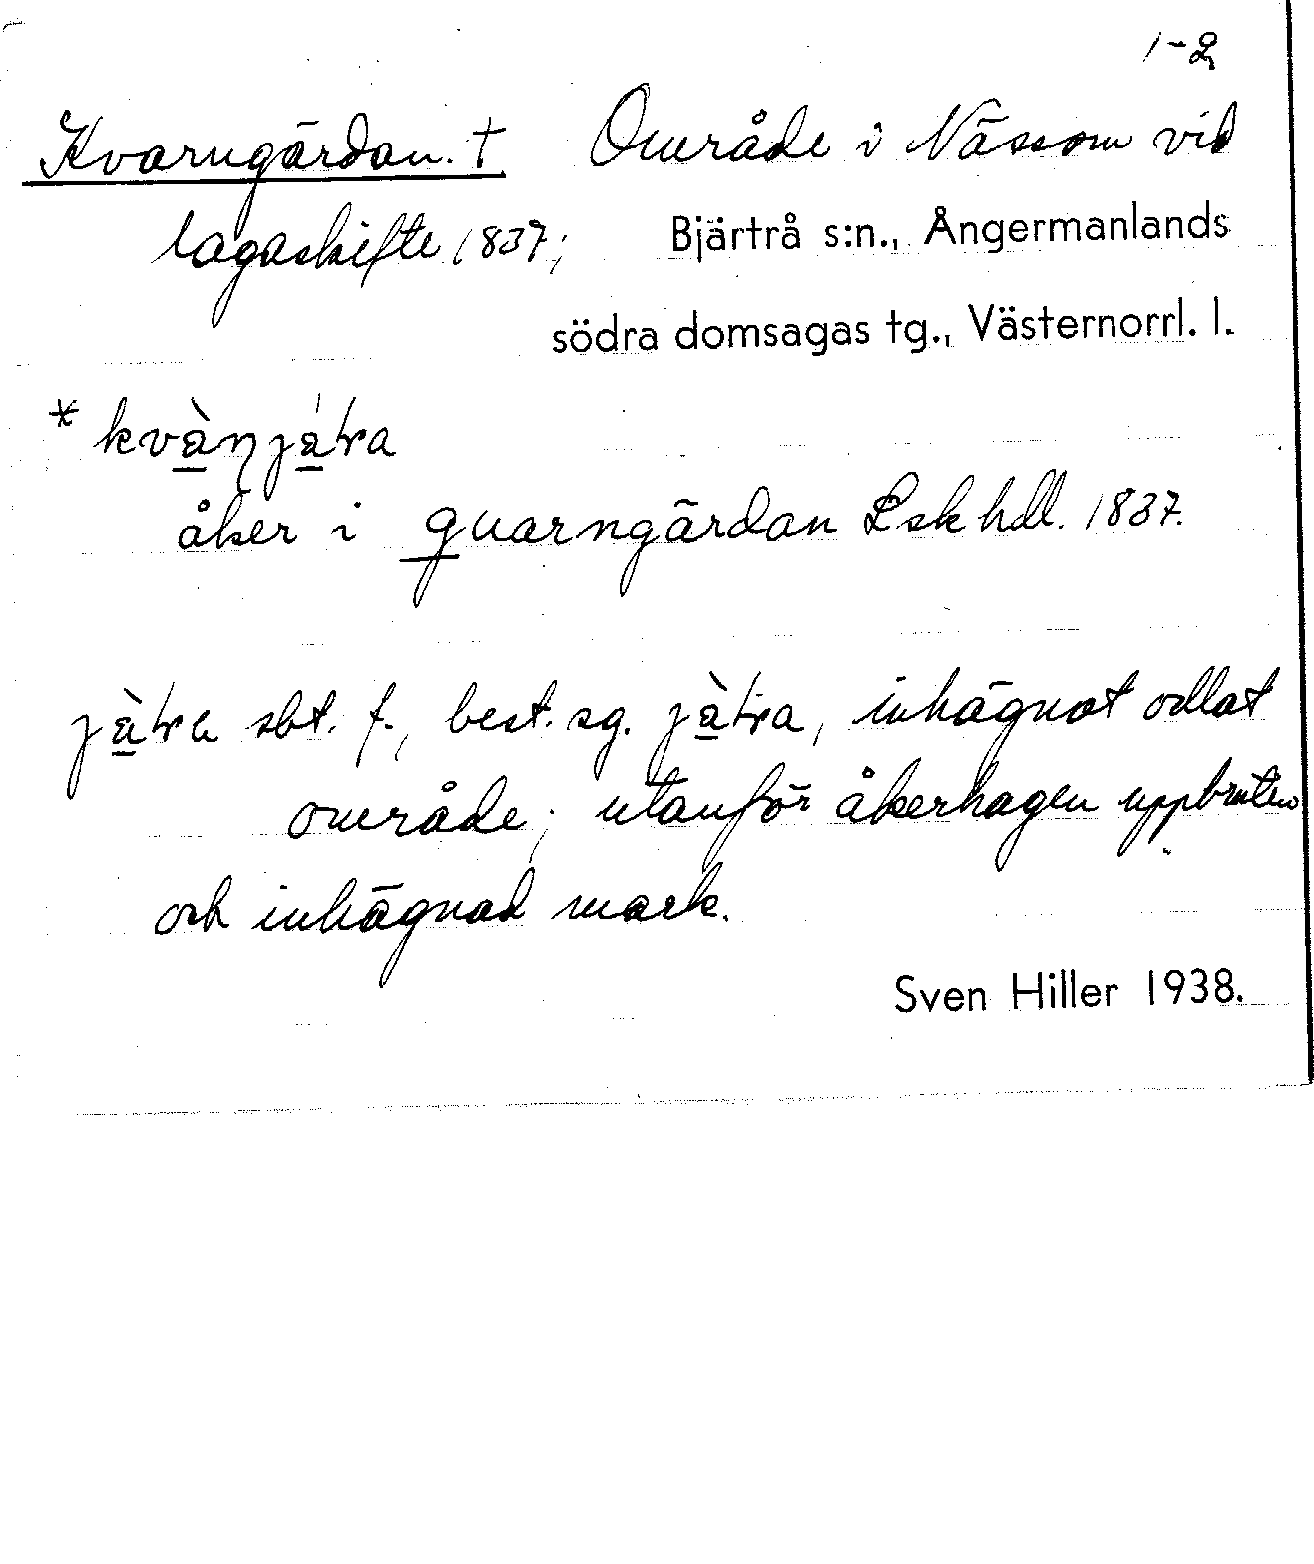 1-2
Kvarngärdan. † Område i Nässom vid
lagaskifte 1837; Bjärtrå s:n., Ångermanlands
södra domsagas tg., Västernorrl. l.
åker i quarngärdan Lsk hdl. 1837.
sbt. f., best. sg. inhägnat odlat
område; utanför åkerhagen uppbruten
och inhägnad mark.
Sven Hiller 1938.